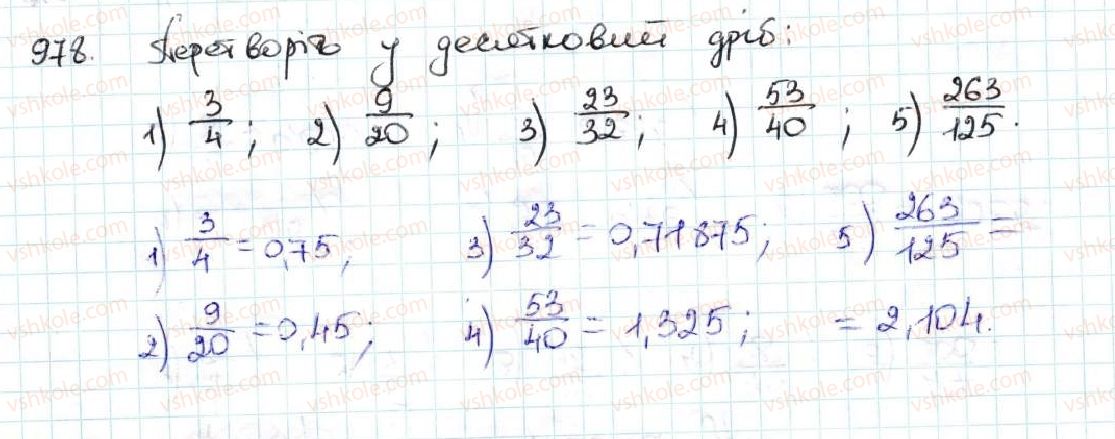 978. Перетворіть у десятковий дріб:
1) 3/4; 2) 9/20; 3) 23/32; 4) 53/40; 5) 263/125.
1) 3/4 = 0,75; 3) 23/32 = 0,71875; 5) 263/125 =
2) 9/20 = 0,45; 4) 53/40 = 1,325; = 2,104.
vshkole.com